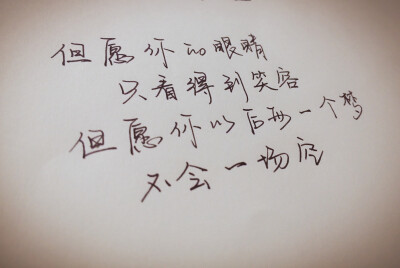 但愿你的眼睛
只看得到笑容
但愿你以后每一个梦
不会一场空